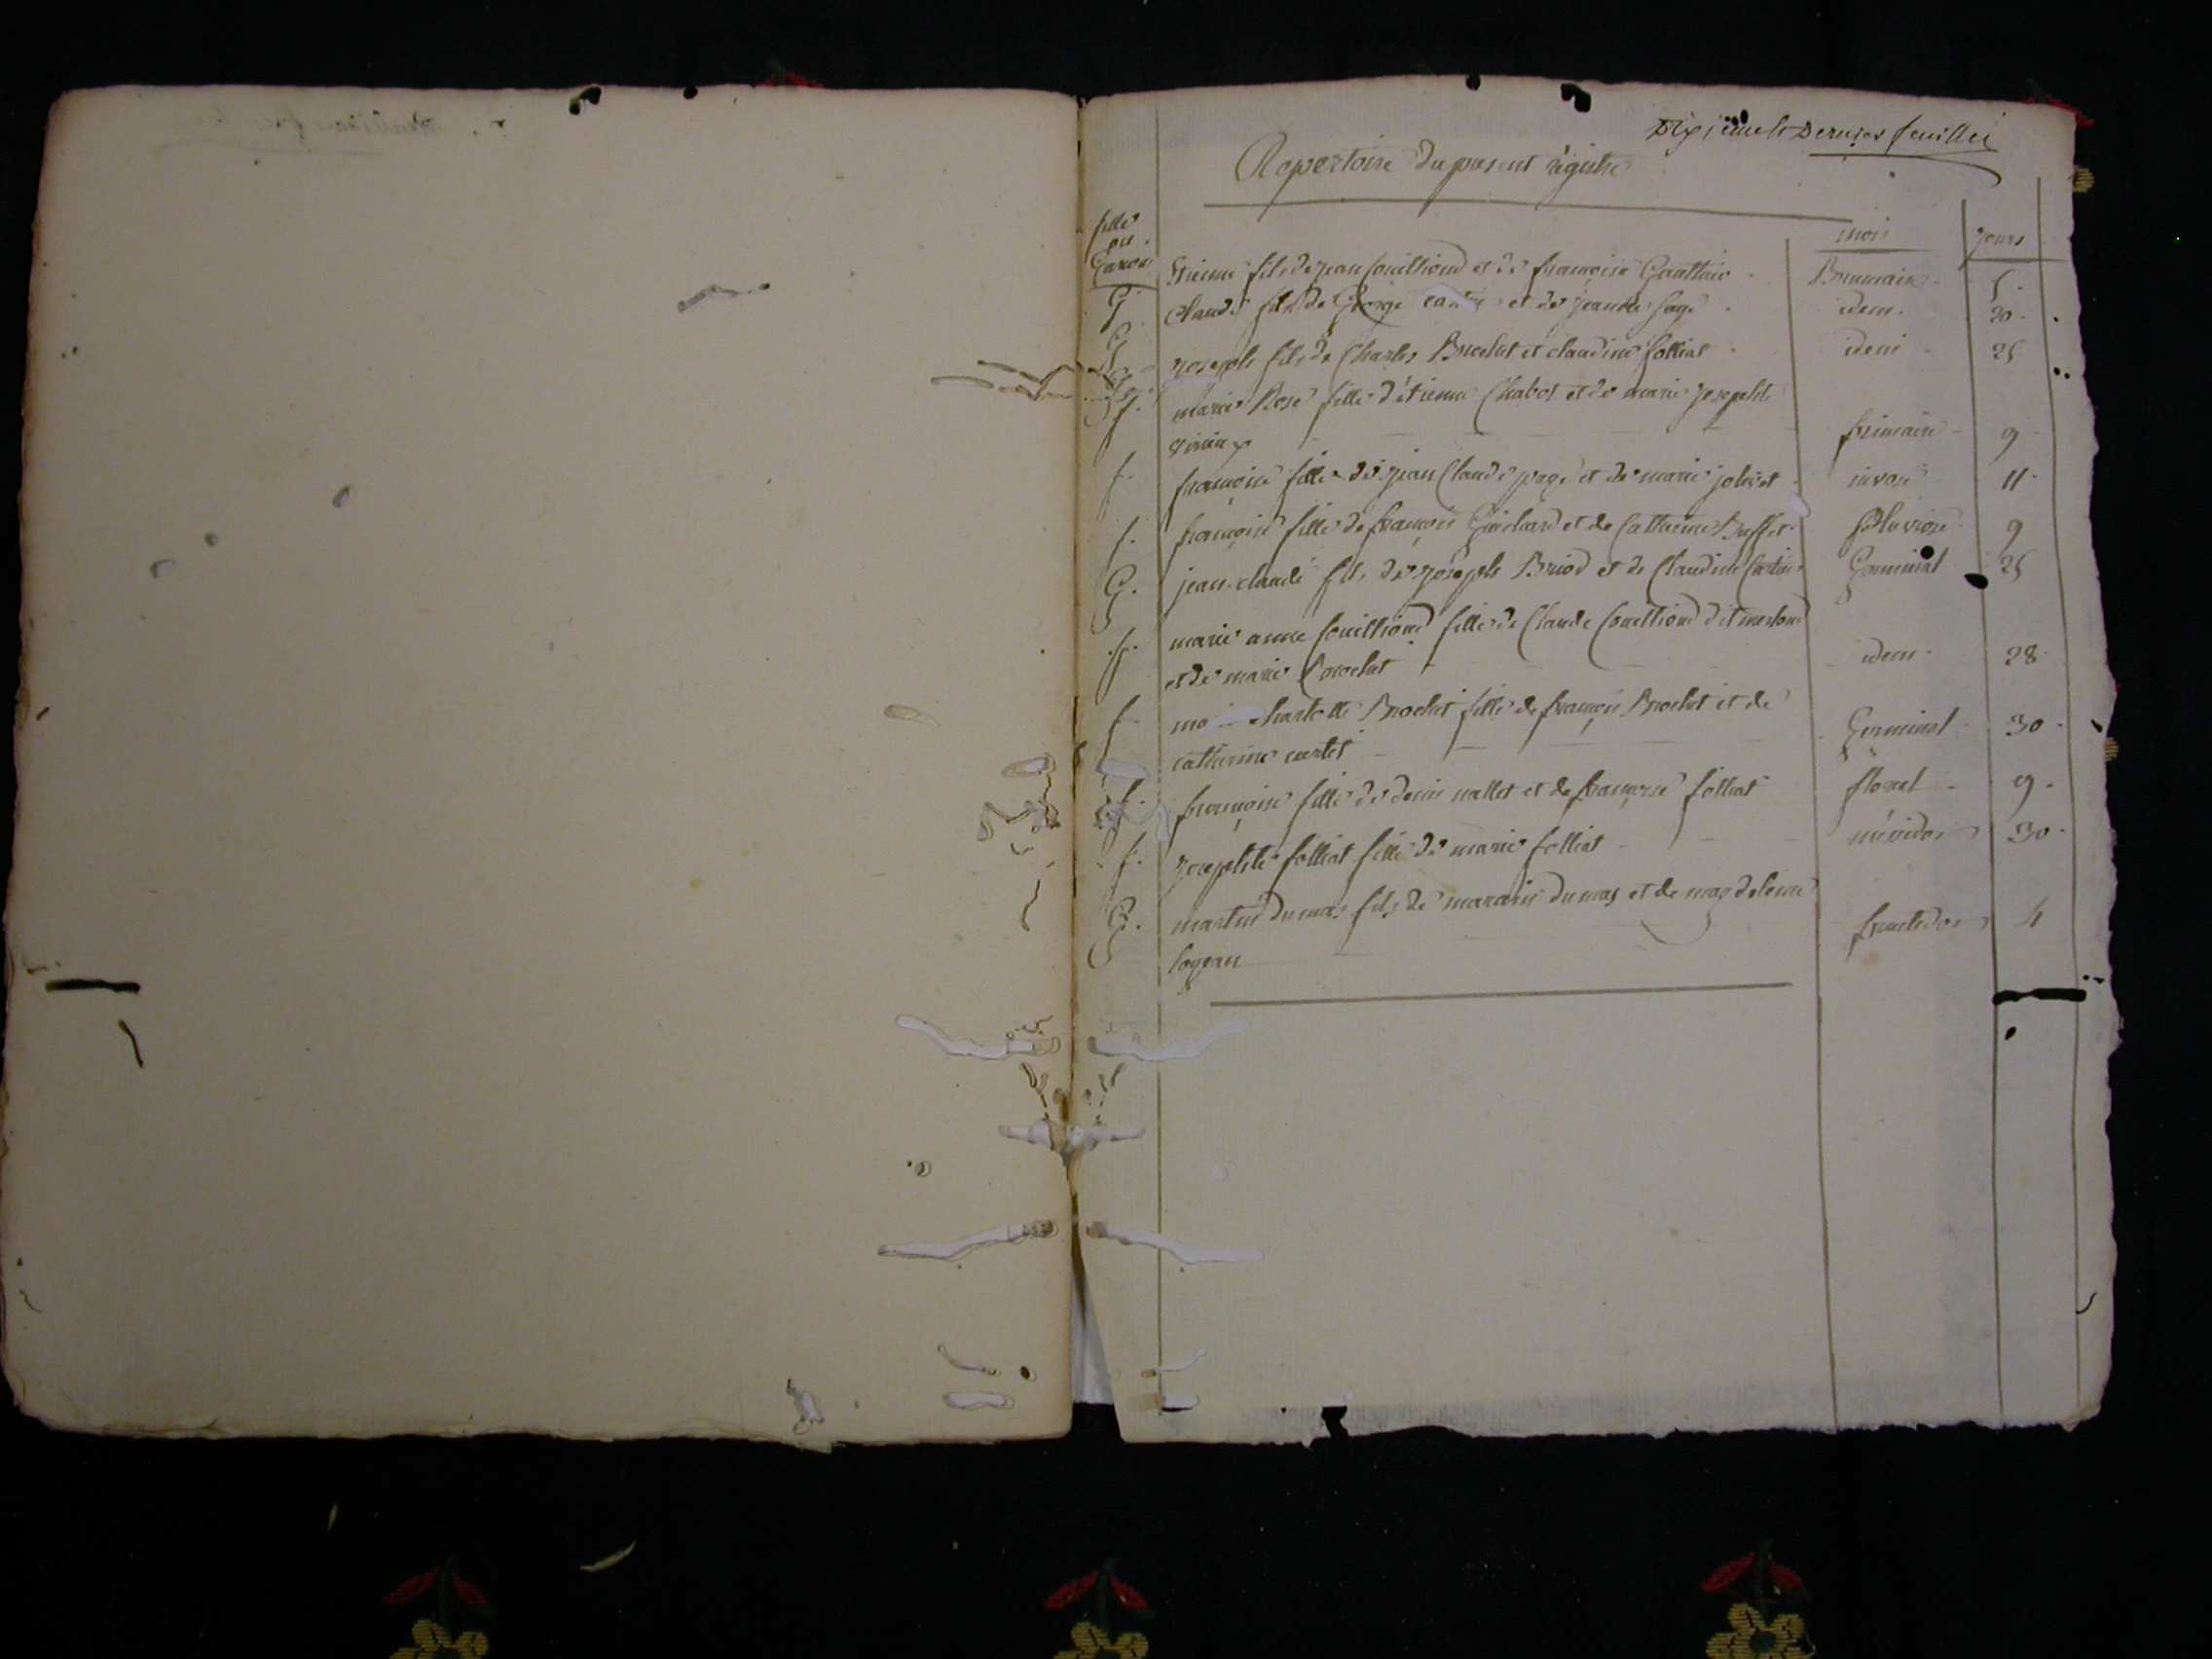 Dixieme et Dernier feuillet
Repertoire du present régistre
fille
ou
Garcon
mois
jours
G. Etienne fils de jean Couilliond et de francoise Brumaire 5.
G. Claude fils de George et de jeanne page idem. 20.
G. joseph fils de Charles Brochet et claudine folliat idem 25
f. marie Rose fille d'étienne Chabot et de marie josephte
frimaire 9
f. francoise fille de jean Claude page et de marie joliet nivose 11
f. francoise fille de francois Guichard et de Catherine Buffet pluviose 9
G. jean claude fils de joseph Briod et de Claudine Germinal 25
f. marie anne Couilliond fille de Claude Couilliond dit
et de marie Brochet idem 28
f. charlotte Brochet fille de francois Brochet et de
catherine curtet Germinal 30
f. francoise fille de denis nallet et de francoise folliat floreal 9.
f. josephte folliat fille de marie folliat méssidor 30
G. martin dumas fils de dumas et de magdeleine
fructidor 4